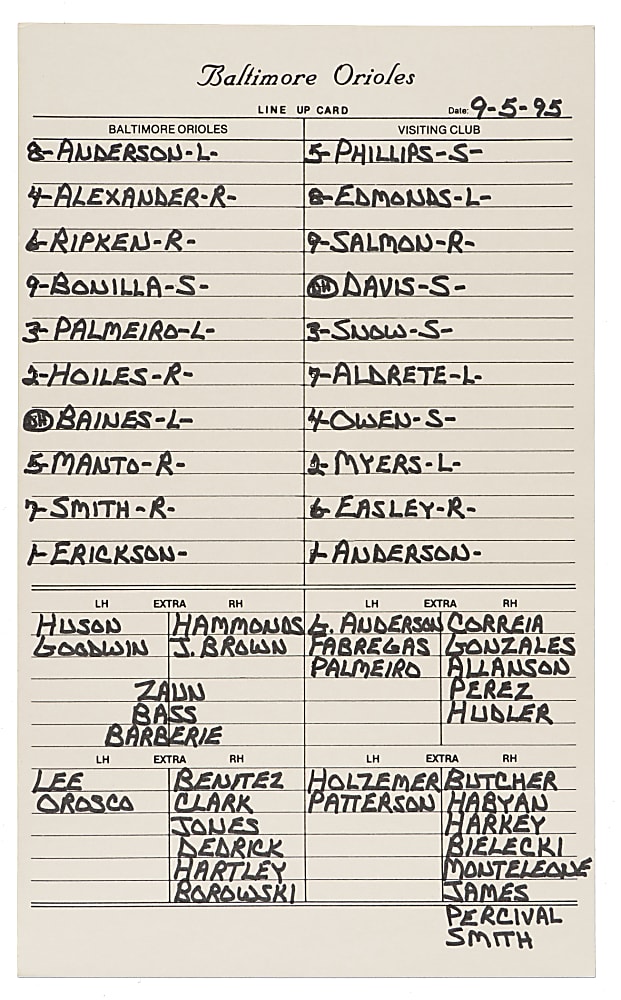 Baltimore Orioles
LINE UP CARD Date: 9-5-95
BALTIMORE ORIOLES VISITING CLUB
8-ANDERSON-L- 5-PHILLIPS-S-
4-ALEXANDER-R- 8-EDMONDS-L-
6-RIPKEN-R- 9-SALMON-R-
9-BONILLA-S- DH DAVIS-S-
3-PALMEIRO-L- 3-SNOW-S-
2-HOILES-R- 7-ALDRETE-L-
DH BAINES-L- 4-OWEN-S-
5-MANTO-R- 2-MYERS-L-
7-SMITH-R- 6-EASLEY-R-
1-ERICKSON- 1-ANDERSON-
LH EXTRA RH LH EXTRA RH
HUSON HAMMONDS G. ANDERSON CORREIA
GOODWIN J. BROWN FABREGAS GONZALES
PALMEIRO ALLANSON
ZAUN PEREZ
BASS HUDLER
BARBERIE
LH EXTRA RH LH EXTRA RH
LEE BENITEZ HOLZEMER BUTCHER
OROSCO CLARK PATTERSON HABYAN
JONES HARKEY
DEDRICK BIELECKI
HARTLEY MONTELEONE
BOROWSKI JAMES
PERCIVAL
SMITH